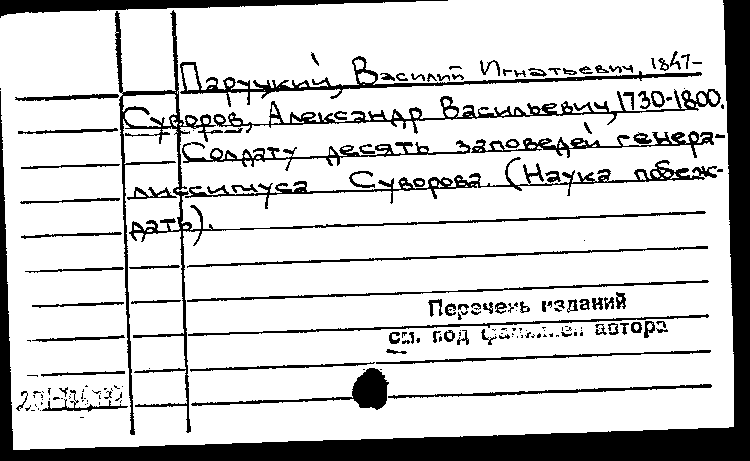 Паруцкий, Василий Игнатьевич, 1847-
Суворов, Александр Васильевич, 1730-1800.
Солдату десять заповедей генера-
лиссимуса Суворова. (Наука побеж-
дать).
Перечень изданий
см. под фамилией автора